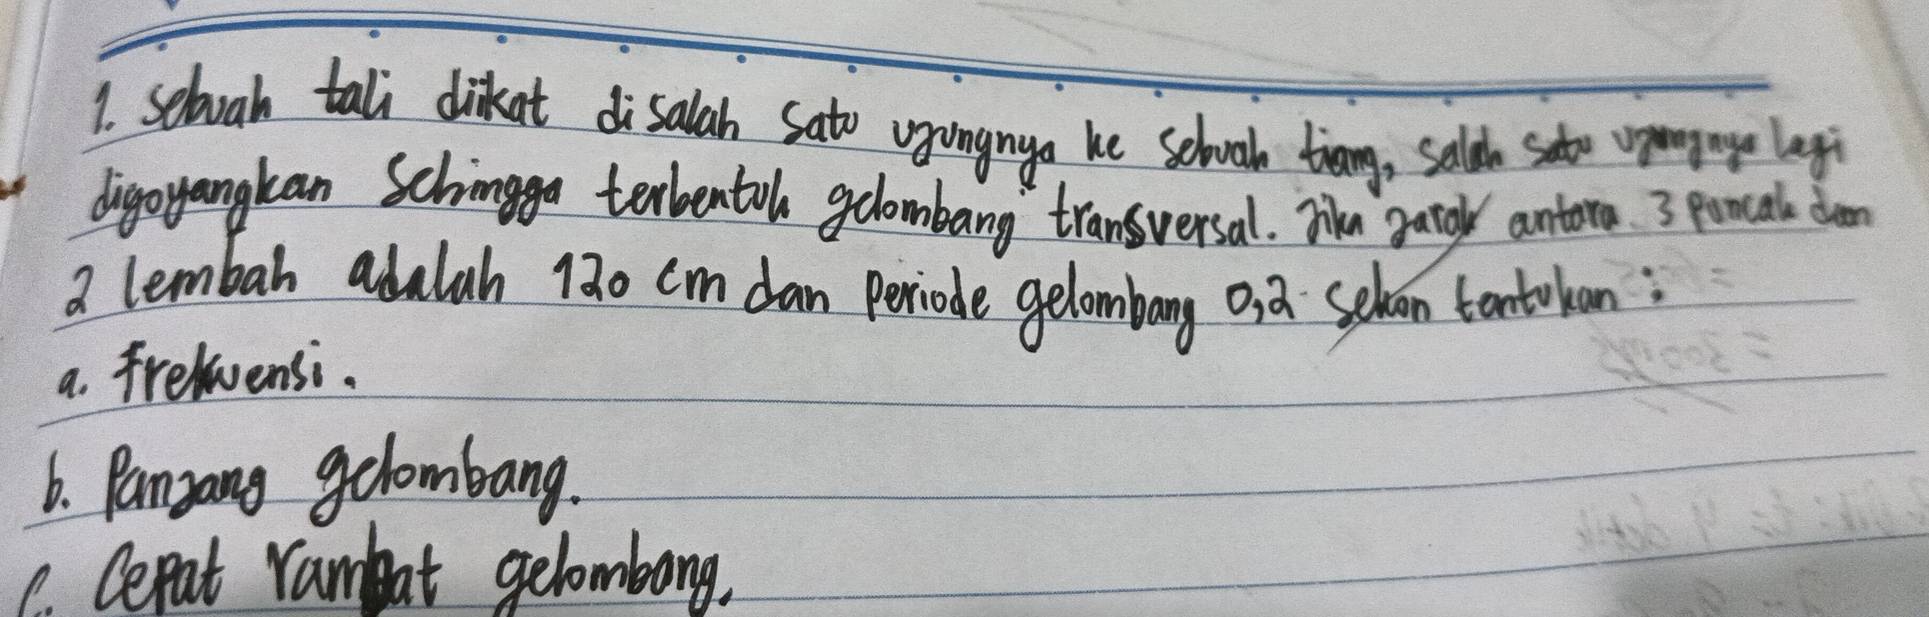 1. Sebuah tali diikat disalah satu ujungnya ke sebuah tiang, salah satu ujungnya lagi
digoyangkan Sehingga terbentuk gelombang transversal. Jika jarak antara 3 puncak dan
2 lembah adalah 120 cm dan periode gelombang 0,2 sekon tentukan :
a. frekuensi.
b. Panjang gelombang.
c. Cepat rambat gelombang.